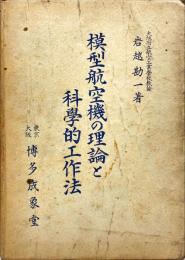 大阪市立航空工業學校教諭
岩越勘一著
模型航空機の理論と
科學的工作法
東京
大阪
博多成象堂